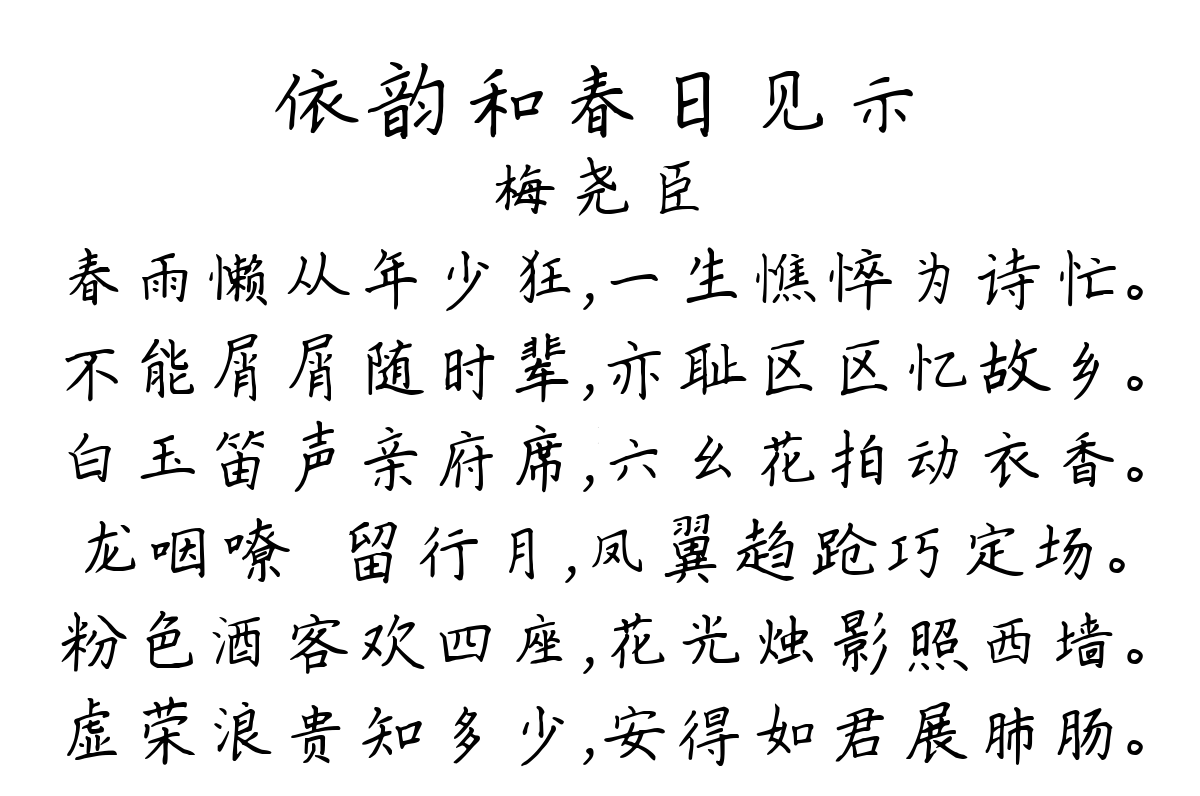 依韵和春日见示
梅尧臣
春雨懒从年少狂,一生憔悴为诗忙。
不能屑屑随时辈,亦耻区区忆故乡。
白玉笛声亲府席,六幺花拍动衣香。
龙咽嘹 留行月,凤翼趋跄巧定场。
粉色酒客欢四座,花光烛影照西墙。
虚荣浪贵知多少,安得如君展肺肠。